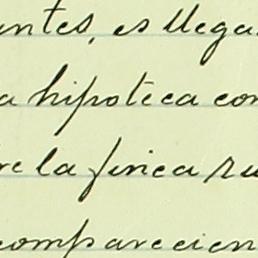 antes, es llega
a hipoteca con
re la finca ru
comparecien